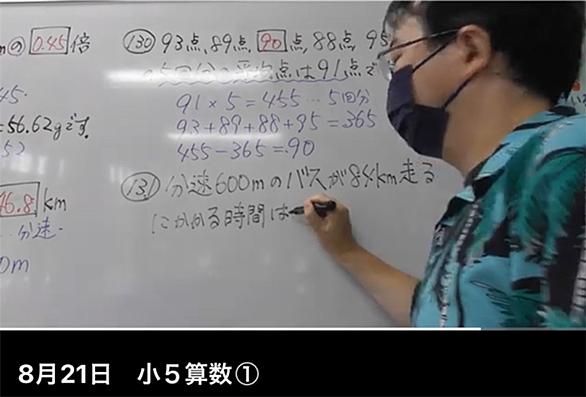 mの 0.45 倍
45.
=56.62gです。
53
46.8 km
…分速·
0m
130 93点、89点、90点、88点、95
5回分の平均点は91点で
91×5=455…5回分
93+89+88+95=365
455-365=90
131 分速600mのバスが84km走る
にかかる時間は
8月21日 小5算数①